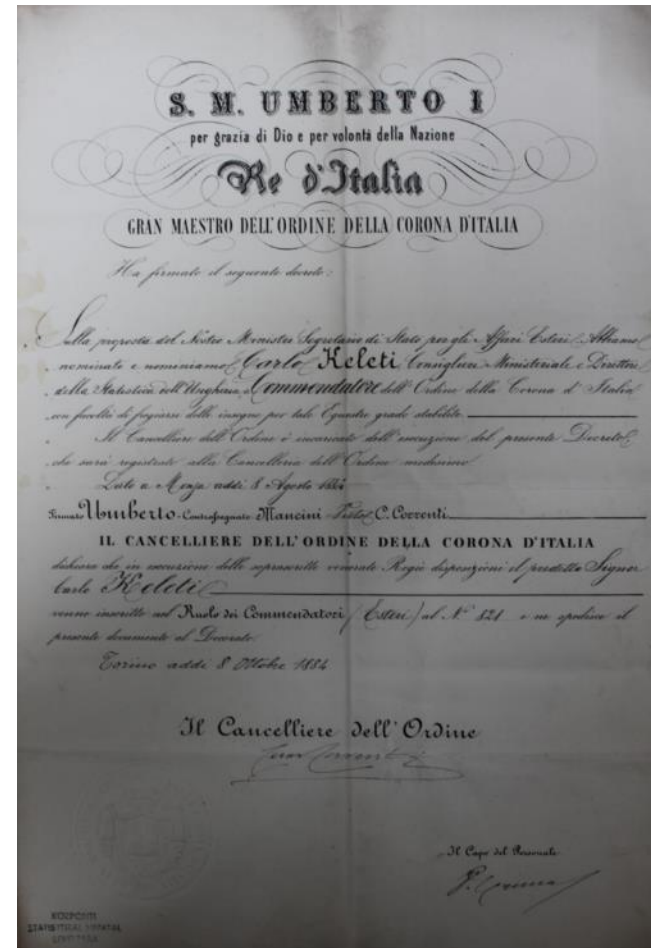 S. M. UMBERTO I
per grazia di Dio e per volontà della Nazione
Re d'Italia
GRAN MAESTRO DELL'ORDINE DELLA CORONA D'ITALIA
Ha firmato il seguente decreto:
Sulla proposta del Nostro Ministro Segretario di Stato per gli Affari Esteri Abbiamo
nominato e nominiamo Carlo Keleti Consigliere Ministeriale e Direttore
della Statistica dell'Ungheria, Commendatore dell'Ordine della Corona d'Italia
con facoltà di fregiarsi delle insegne per tale Equestre grado stabilite.
Il Cancelliere dell'Ordine è incaricato dell'esecuzione del presente Decreto
che sarà registrato alla Cancelleria dell'Ordine medesimo.
Dato a Monza addì 8 Agosto 1884
Firmato Umberto. Controfirmato Mancini Visto C. Correnti.
IL CANCELLIERE DELL'ORDINE DELLA CORONA D'ITALIA
dichiara che in esecuzione delle soprascritte Regie disposizioni il predetto Signor
Carlo Keleti
venne inscritto nel Ruolo dei Commendatori (Esteri) al N.º 821 e ne spedisce il
presente documento al Decorato.
Torino addì 8 Ottobre 1884
Il Cancelliere dell'Ordine
Cesare Correnti
Il Capo del Personale
KÖZPONTI
STATISZTIKAI HIVATAL